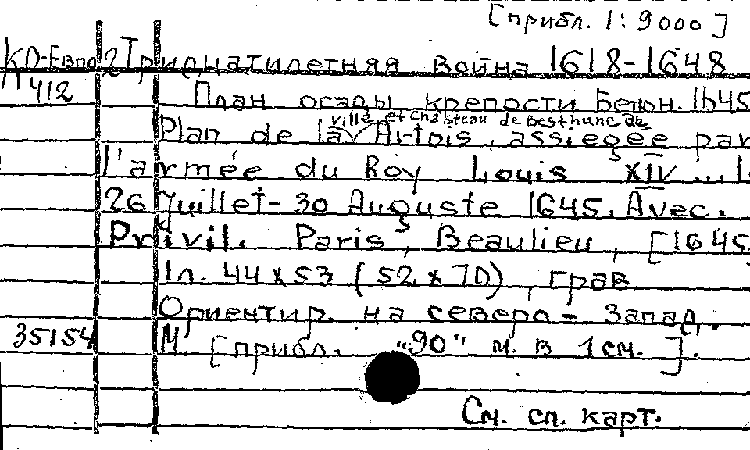 [прибл. 1:9000]
КО-Евпо 2 Тридцатилетняя война 1618-1648
П 412 План осады крепости Бетюн. 1645
ville et Château de Besthune de
Plan de la Artois, assiegée par
l'armée du Roy Louis XIV...
26 Juillet-30 Auguste 1645. Avec.
Privil. Paris, Beaulieu, [1645
1л. 44x53 (52x70), грав
Ориентир. на северо-запад.
35154 М. [прибл. "90" м. в 1см.].
См. сл. карт.